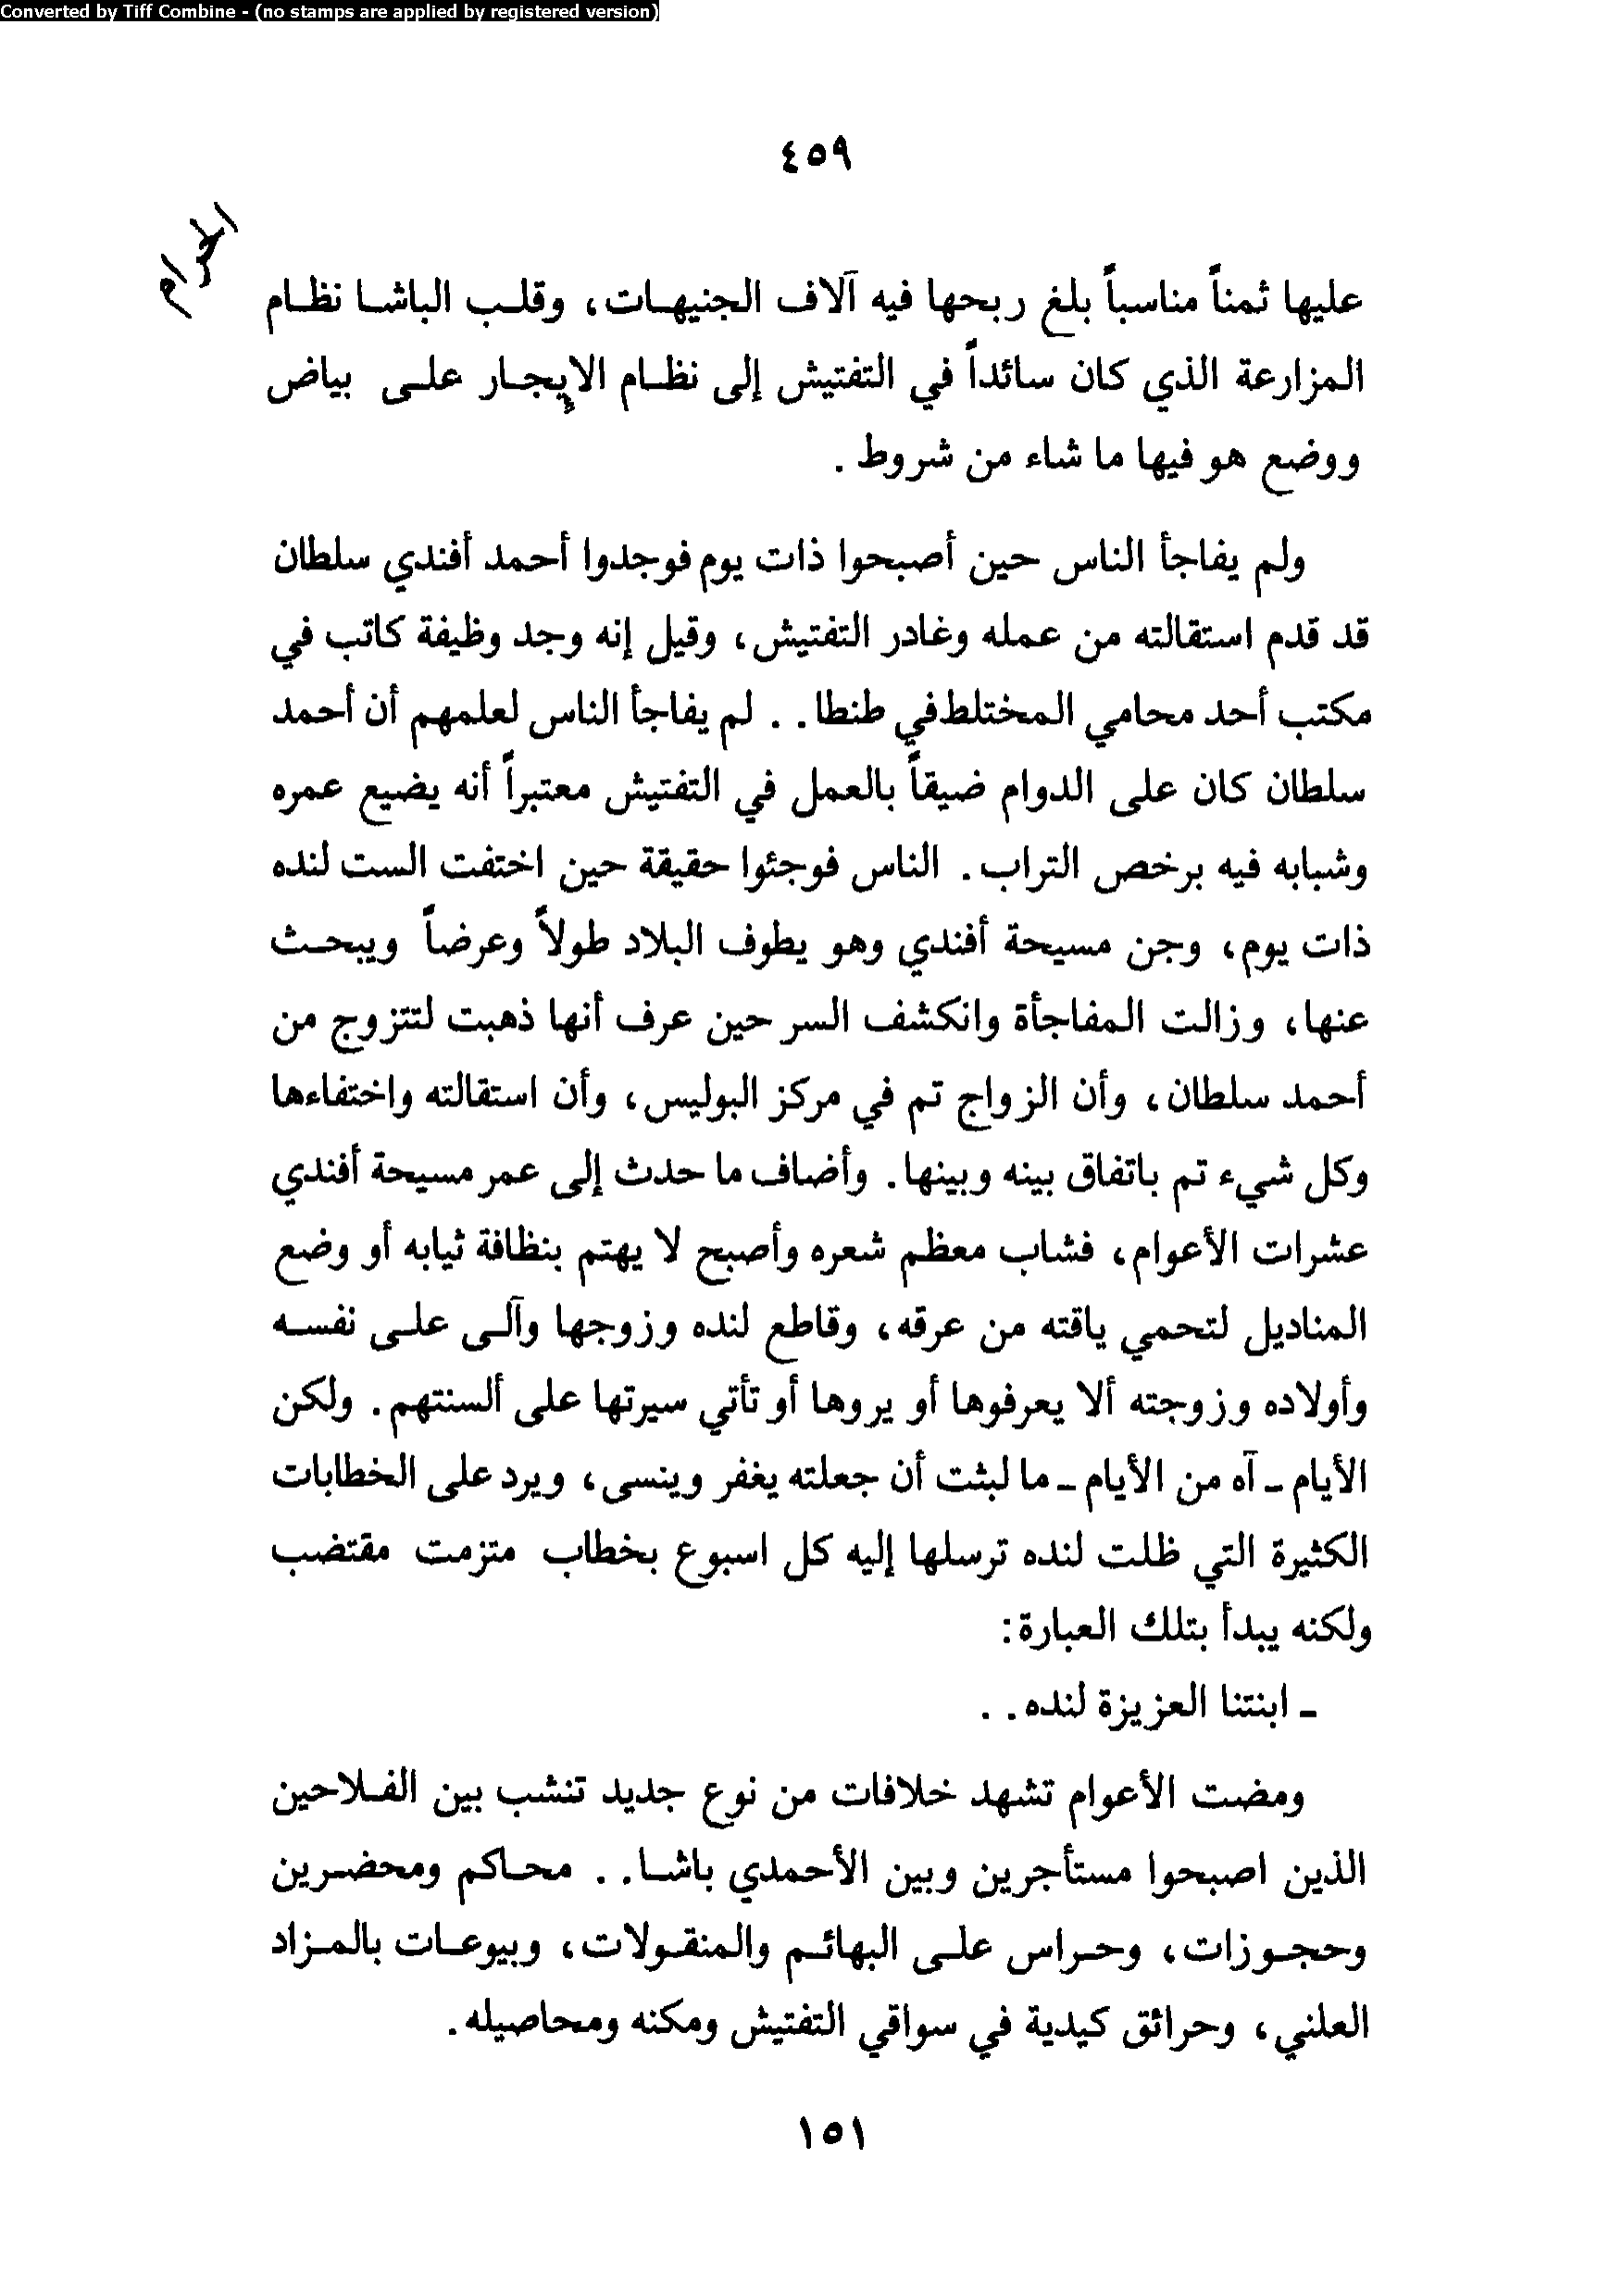 Converted by Tiff Combine - (no stamps are applied by registered version)
٤٥٩
الحرام
عليها ثمناً مناسباً بلغ ربحها فيه آلاف الجنيهات، وقلب الباشا نظام
المزارعة الذي كان سائداً في التفتيش إلى نظام الايجار على بياض
ووضع هو فيها ما شاء من شروط .
ولم يفاجأ الناس حين أصبحوا ذات يوم فوجدوا أحمد أفندي سلطان
قد قدم استقالته من عمله وغادر التفتيش، وقيل إنه وجد وظيفة كاتب في
مكتب أحد محامي المختلط في طنطا . . لم يفاجأ الناس لعلمهم أن أحمد
سلطان كان على الدوام ضيقاً بالعمل في التفتيش معتبراً أنه يضيع عمره
وشبابه فيه برخص التراب. الناس فوجئوا حقيقة حين اختفت الست لنده
ذات يوم، وجن مسيحة أفندي وهو يطوف البلاد طولاً وعرضاً ويبحث
عنها، وزالت المفاجأة وانكشف السر حين عرف أنها ذهبت لتتزوج من
أحمد سلطان، وأن الزواج تم في مركز البوليس، وأن استقالته واختفاءها
وكل شيء تم باتفاق بينه وبينها. وأضاف ما حدث إلى عمر مسيحة أفندي
عشرات الأعوام، فشاب معظم شعره وأصبح لا يهتم بنظافة ثيابه أو وضع
المناديل لتحمي ياقته من عرقه، وقاطع لنده وزوجها وآلى على نفسه
وأولاده وزوجته ألا يعرفوها أو يروها أو تأتي سيرتها على ألسنتهم. ولكن
الأيام ـ آه من الأيام ـ ما لبثت أن جعلته يغفر وينسى، ويرد على الخطابات
الكثيرة التي ظلت لنده ترسلها إليه كل اسبوع بخطاب متزمت مقتضب
ولكنه يبدأ بتلك العبارة:
ـ ابنتنا العزيزة لنده . .
ومضت الأعوام تشهد خلافات من نوع جديد تنشب بين الفلاحين
الذين اصبحوا مستأجرين وبين الأحمدي باشا. . محاكم ومحضرين
وحجوزات، وحراس على البهائم والمنقولات، وبيوعات بالمزاد
العلني، وحرائق كيدية في سواقي التفتيش ومكنه ومحاصيله.
١٥١